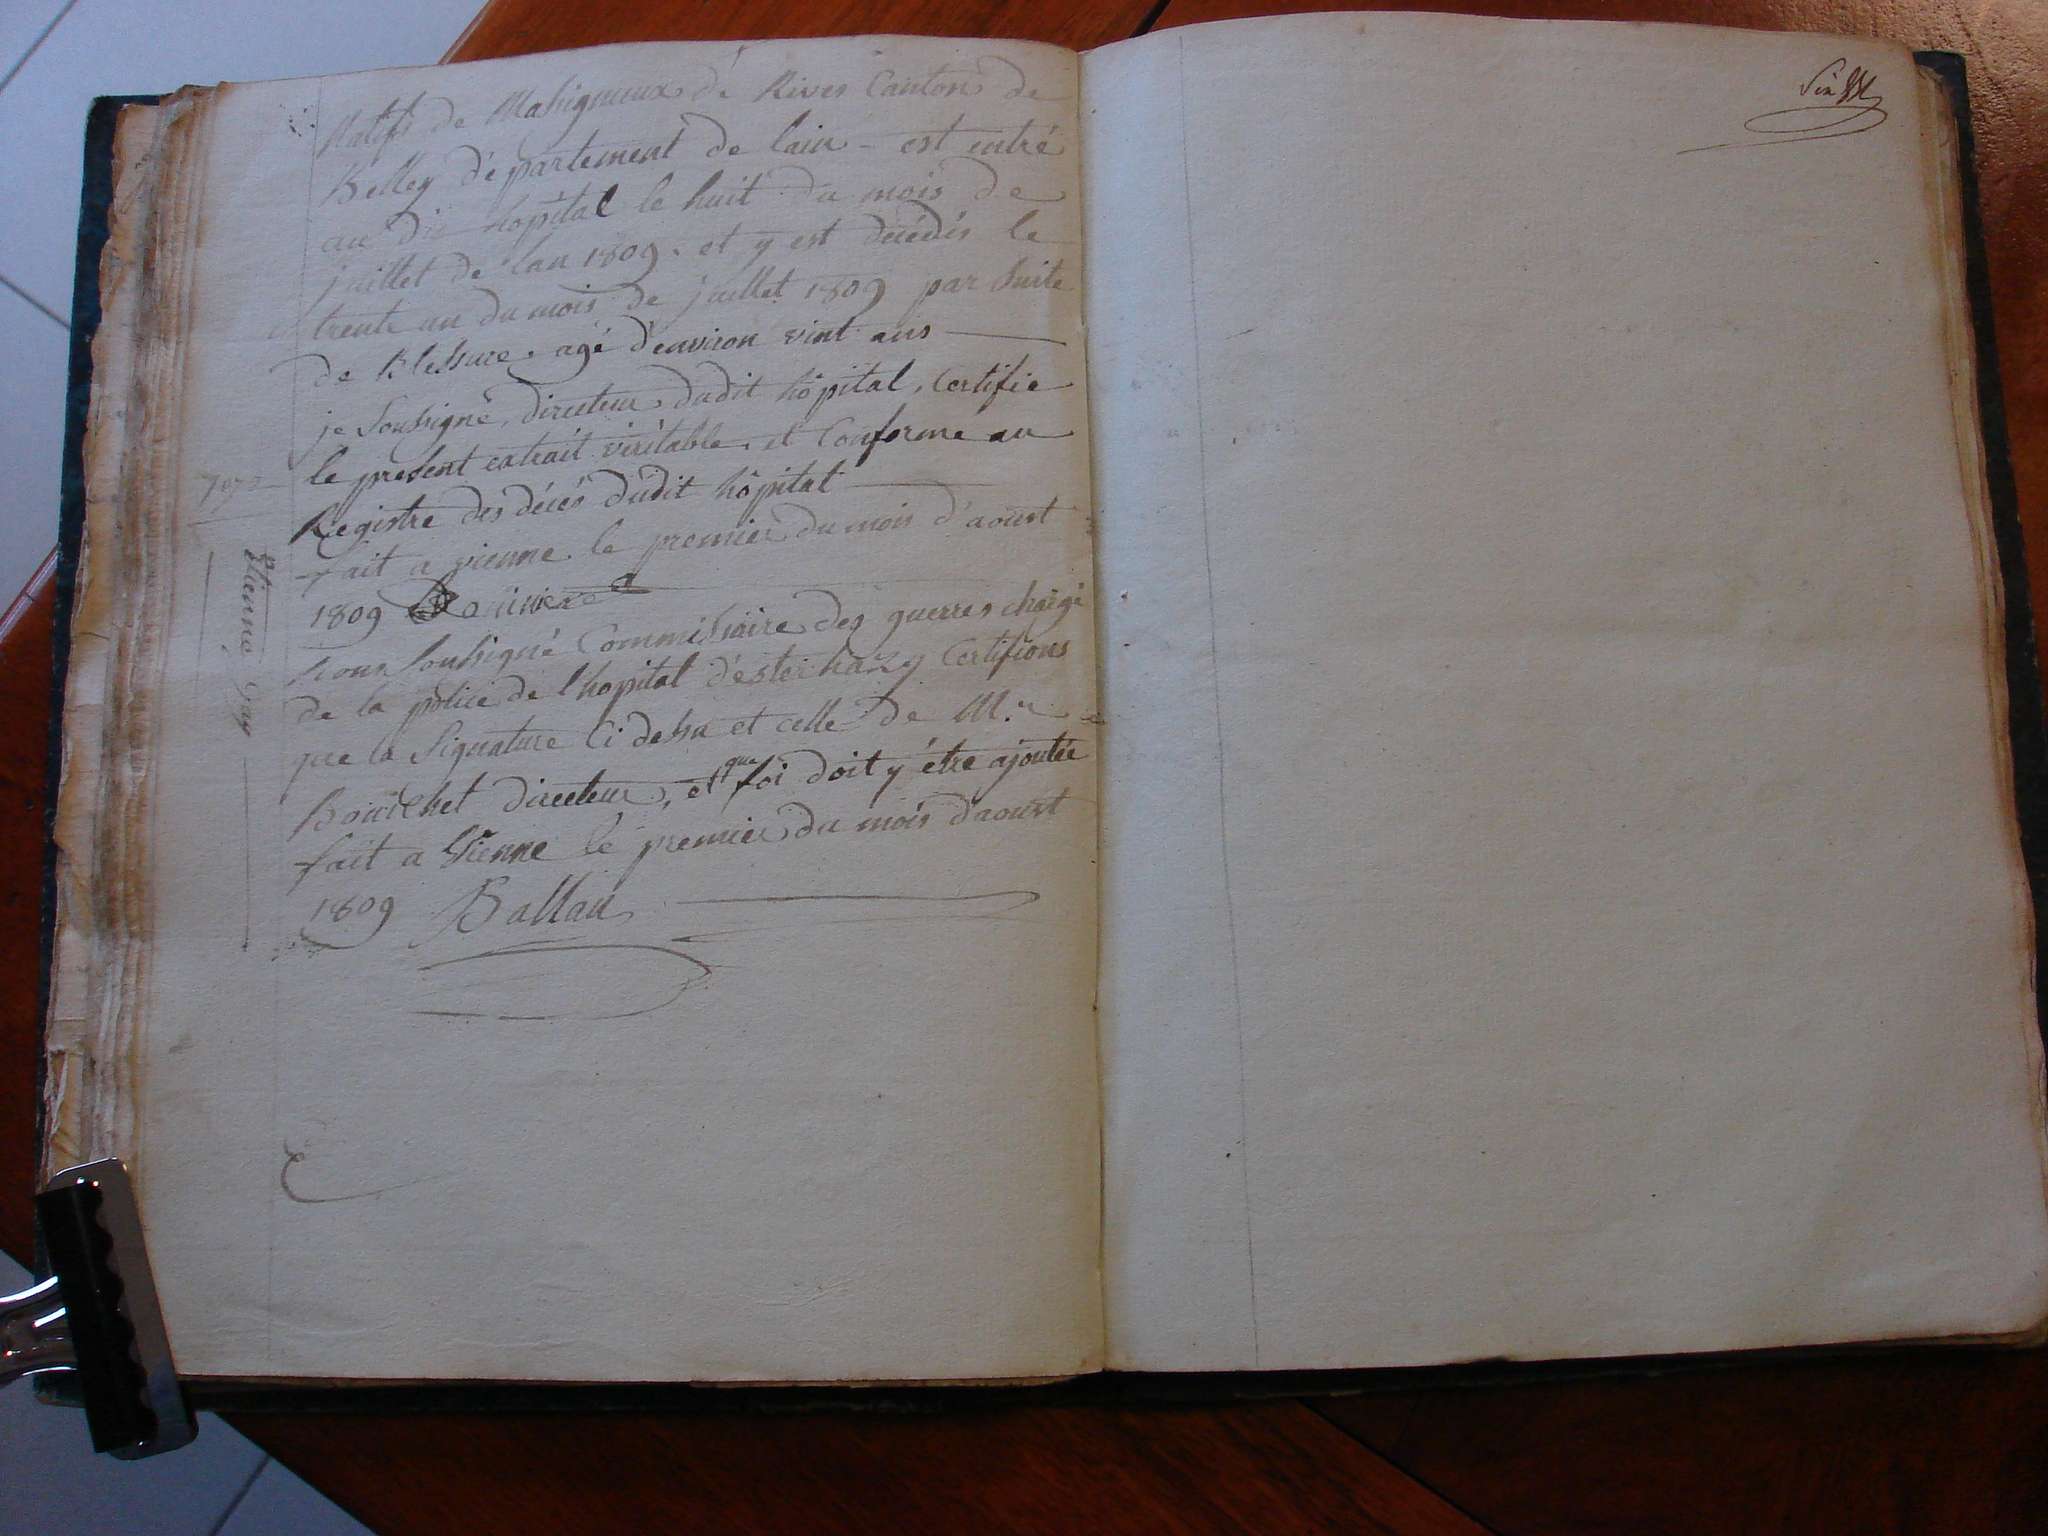 Natif de Massignieux de Rives Canton de
Belley département de lain - est entré
au dit hopital le huit du mois de
juillet de lan 1809. et y est décédés le
trente un du mois de juillet 1809 par suite
de Blessure. agé d'environ vint ans
je Soussigné, directeur dudit hôpital, Certifie
le present extrait véritable et Conforme au
Registre des décés dudit hôpital
fait a vienne le premier du mois d'aoust
1809
Nous Soussigné Commissaire des guerres chargé
de la police de l'hopital d'esterhazy Certifions
que la Signature Ci dessu et celle de M.r
Bouchet directeur, et que foi doit y être ajoutée
fait a Vienne le premier du mois d'aoust
1809 Ballau
Etienne Gay